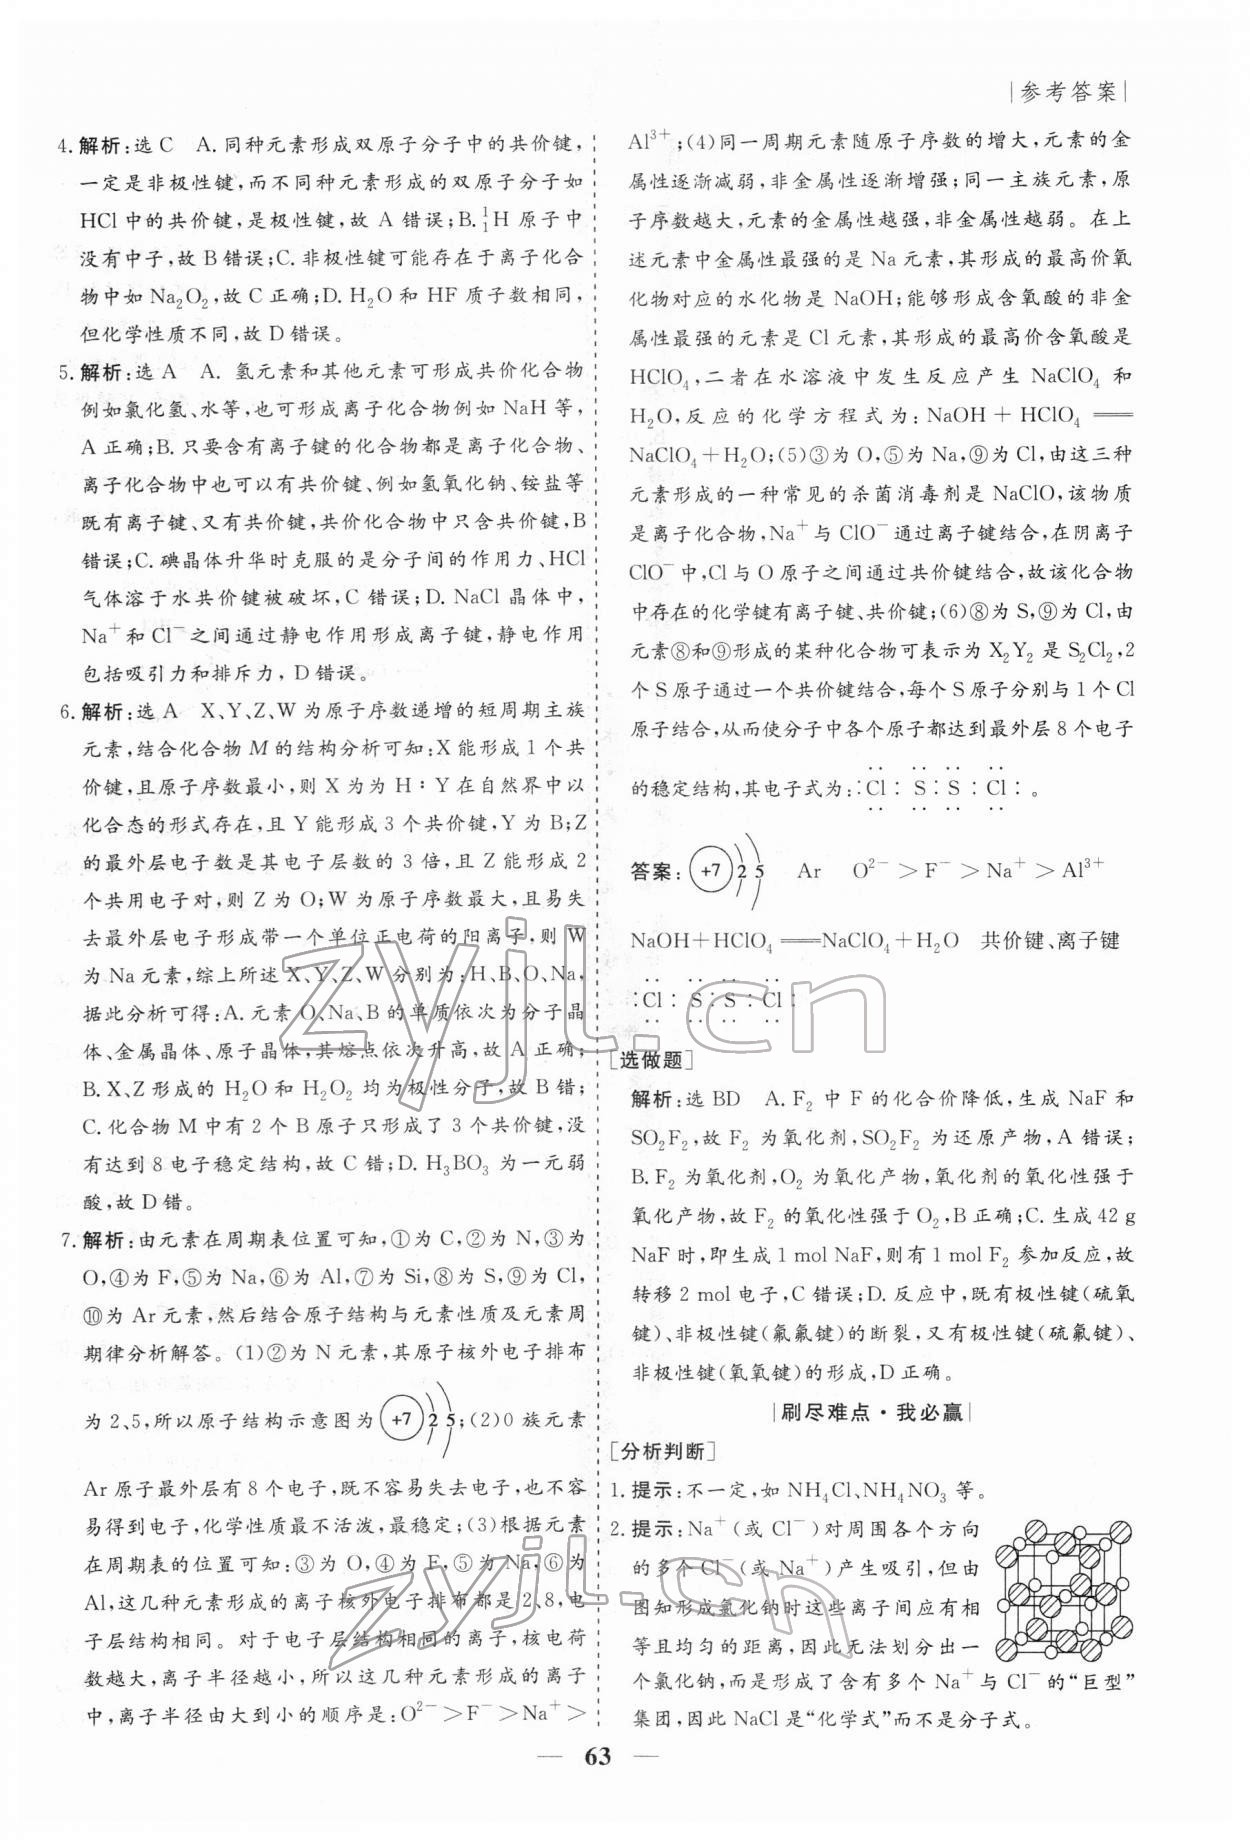 |参考答案|
4. 解析:选 C　A. 同种元素形成双原子分子中的共价键,
一定是非极性键,而不同种元素形成的双原子分子如
HCl 中的共价键,是极性键,故 A 错误;B. ¹₁H 原子中
没有中子,故 B错误;C. 非极性键可能存在于离子化合
物中如 Na₂O₂,故 C 正确;D. H₂O 和 HF 质子数相同,
但化学性质不同,故 D 错误。
5. 解析:选 A　A. 氢元素和其他元素可形成共价化合物
例如氯化氢、水等,也可形成离子化合物例如 NaH 等,
A 正确;B. 只要含有离子键的化合物都是离子化合物、
离子化合物中也可以有共价键、例如氢氧化钠、铵盐等
既有离子键、又有共价键,共价化合物中只含共价键,B
错误;C. 碘晶体升华时克服的是分子间的作用力、HCl
气体溶于水共价键被破坏,C 错误;D. NaCl 晶体中,
Na⁺ 和 Cl⁻ 之间通过静电作用形成离子键,静电作用
包括吸引力和排斥力,D 错误。
6. 解析:选 A　X、Y、Z、W 为原子序数递增的短周期主族
元素,结合化合物 M 的结构分析可知:X 能形成 1 个共
价键,且原子序数最小,则 X 为为 H:Y 在自然界中以
化合态的形式存在,且 Y 能形成 3 个共价键,Y 为 B;Z
的最外层电子数是其电子层数的 3 倍,且 Z 能形成 2
个共用电子对,则 Z 为 O;W 为原子序数最大,且易失
去最外层电子形成带一个单位正电荷的阳离子,则 W
为 Na 元素,综上所述 X、Y、Z、W 分别为:H、B、O、Na,
据此分析可得:A. 元素 O、Na、B 的单质依次为分子晶
体、金属晶体、原子晶体,其熔点依次升高,故 A 正确;
B. X、Z 形成的 H₂O 和 H₂O₂ 均为极性分子,故 B 错;
C. 化合物 M 中有 2 个 B 原子只形成了 3 个共价键,没
有达到 8 电子稳定结构,故 C 错;D. H₃BO₃ 为一元弱
酸,故 D 错。
7. 解析:由元素在周期表位置可知,①为 C,②为 N,③为
O,④为 F,⑤为 Na,⑥为 Al,⑦为 Si,⑧为 S,⑨为 Cl,
⑩为 Ar 元素,然后结合原子结构与元素性质及元素周
期律分析解答。(1)②为 N 元素,其原子核外电子排布
为 2、5,所以原子结构示意图为 +7 2 5 ;(2)0 族元素
Ar 原子最外层有 8 个电子,既不容易失去电子,也不容
易得到电子,化学性质最不活泼,最稳定;(3)根据元素
在周期表的位置可知:③为 O,④为 F,⑤为 Na,⑥为
Al,这几种元素形成的离子核外电子排布都是 2、8,电
子层结构相同。对于电子层结构相同的离子,核电荷
数越大,离子半径越小,所以这几种元素形成的离子
中,离子半径由大到小的顺序是:O²⁻＞F⁻＞Na⁺＞
Al³⁺;(4)同一周期元素随原子序数的增大,元素的金
属性逐渐减弱,非金属性逐渐增强;同一主族元素,原
子序数越大,元素的金属性越强,非金属性越弱。在上
述元素中金属性最强的是 Na 元素,其形成的最高价氧
化物对应的水化物是 NaOH;能够形成含氧酸的非金
属性最强的元素是 Cl 元素,其形成的最高价含氧酸是
HClO₄,二者在水溶液中发生反应产生 NaClO₄ 和
H₂O,反应的化学方程式为:NaOH＋HClO₄══
NaClO₄＋H₂O;(5)③为 O,⑤为 Na,⑨为 Cl,由这三种
元素形成的一种常见的杀菌消毒剂是 NaClO,该物质
是离子化合物,Na⁺与 ClO⁻通过离子键结合,在阴离子
ClO⁻中,Cl与 O 原子之间通过共价键结合,故该化合物
中存在的化学键有离子键、共价键;(6)⑧为 S,⑨为 Cl,由
元素⑧和⑨形成的某种化合物可表示为 X₂Y₂ 是 S₂Cl₂,2
个 S 原子通过一个共价键结合,每个 S 原子分别与 1 个 Cl
原子结合,从而使分子中各个原子都达到最外层 8 个电子
的稳定结构,其电子式为: :Cl:S:S:Cl: 。
答案: +7 2 5　Ar　O²⁻＞F⁻＞Na⁺＞Al³⁺
NaOH＋HClO₄══NaClO₄＋H₂O　共价键、离子键
:Cl:S:S:Cl:
[选做题]
解析:选 BD　A. F₂ 中 F 的化合价降低,生成 NaF 和
SO₂F₂,故 F₂ 为氧化剂,SO₂F₂ 为还原产物,A 错误;
B. F₂ 为氧化剂,O₂ 为氧化产物,氧化剂的氧化性强于
氧化产物,故 F₂ 的氧化性强于 O₂,B 正确;C. 生成 42 g
NaF 时,即生成 1 mol NaF,则有 1 mol F₂ 参加反应,故
转移 2 mol 电子,C 错误;D. 反应中,既有极性键(硫氧
键)、非极性键(氟氟键)的断裂,又有极性键(硫氟键)、
非极性键(氧氧键)的形成,D 正确。
|刷尽难点·我必赢|
[分析判断]
1. 提示:不一定,如 NH₄Cl、NH₄NO₃ 等。
2. 提示:Na⁺(或 Cl⁻)对周围各个方向
的多个 Cl⁻(或 Na⁺)产生吸引,但由
图知形成氯化钠时这些离子间应有相
等且均匀的距离,因此无法划分出一
个氯化钠,而是形成了含有多个 Na⁺ 与 Cl⁻ 的“巨型”
集团,因此 NaCl 是“化学式”而不是分子式。
— 63 —
zyjl.cn
zyjl.cn